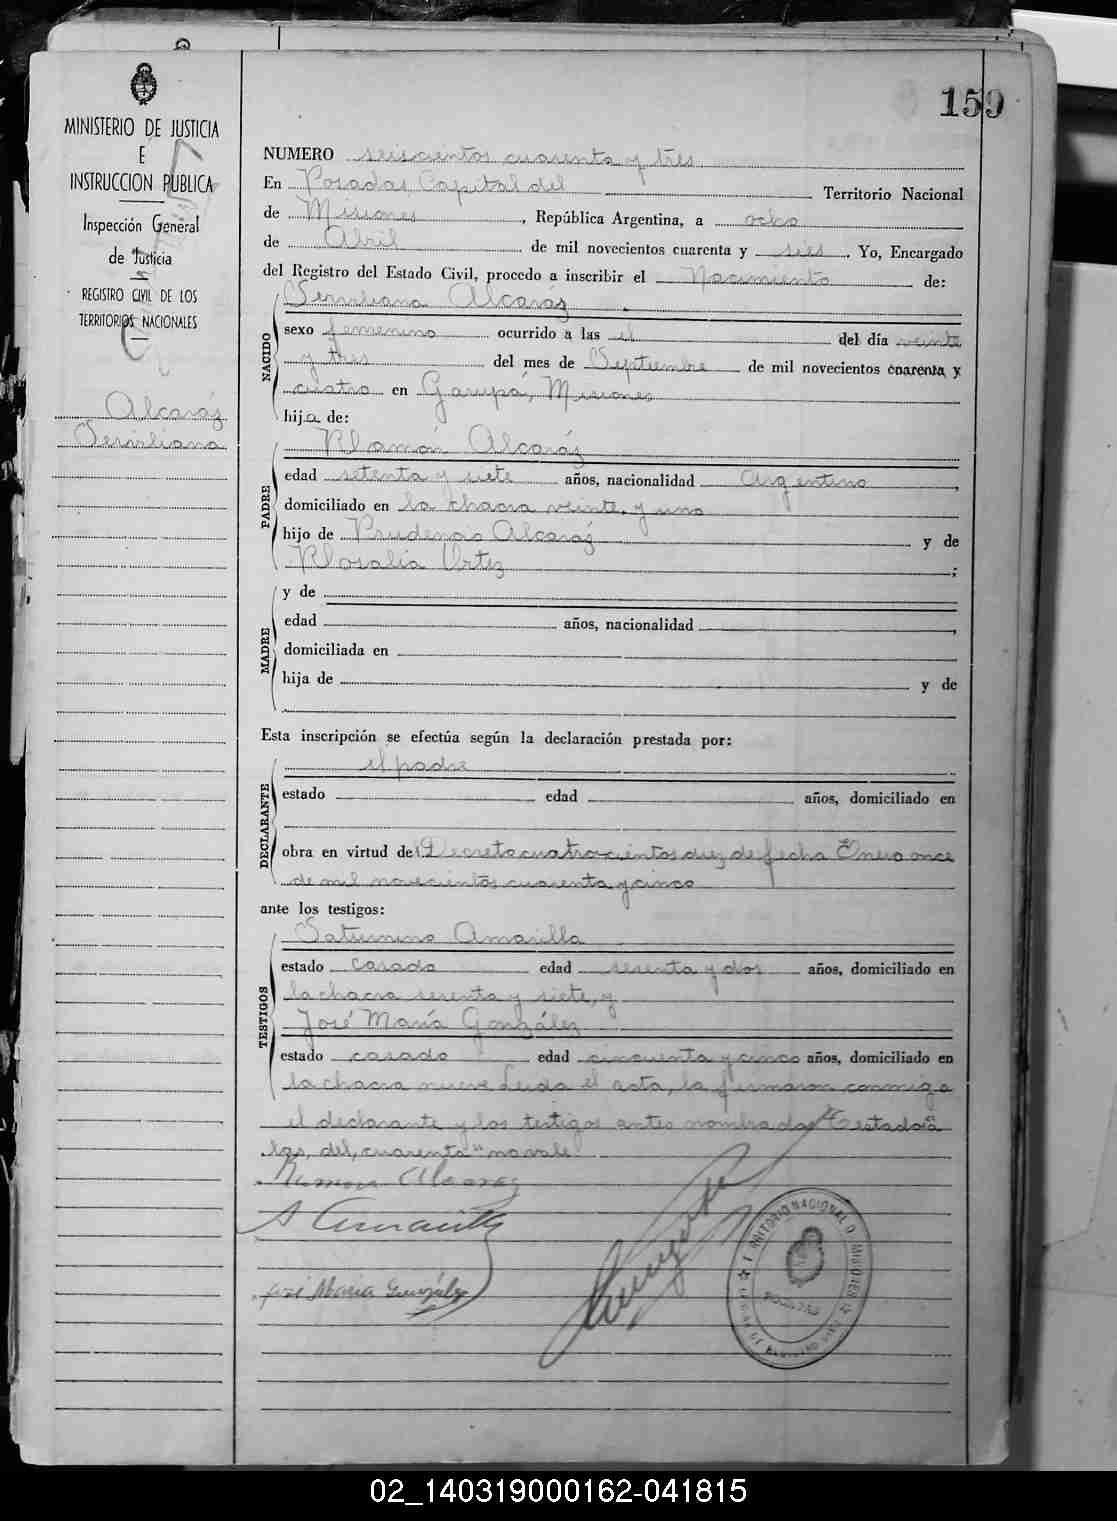 159
MINISTERIO DE JUSTICIA
E
INSTRUCCION PUBLICA
Inspección General
de Justicia
REGISTRO CIVIL DE LOS
TERRITORIOS NACIONALES
Alcaráz
Serviliana
NUMERO seiscientos cuarenta y tres
En Posadas Capital del Territorio Nacional
de Misiones, República Argentina, a ocho
de Abril de mil novecientos cuarenta y seis. Yo, Encargado
del Registro del Estado Civil, procedo a inscribir el Nacimiento de:
NACIDO
Serviliana Alcaráz
sexo femenino ocurrido a las el del día veinte
y tres del mes de Septiembre de mil novecientos cuarenta y
cuatro en Garupá, Misiones
hija de:
PADRE
Ramón Alcaráz
edad setenta y siete años, nacionalidad Argentino,
domiciliado en la chacra veinte y uno
hijo de Prudencio Alcaráz y de
Rosalía Ortiz;
MADRE
y de
edad años, nacionalidad ,
domiciliada en
hija de y de
Esta inscripción se efectúa según la declaración prestada por:
DECLARANTE
el padre
estado edad años, domiciliado en
obra en virtud de Decreto cuatrocientos diez de fecha Enero once
de mil novecientos cuarenta y cinco
ante los testigos:
TESTIGOS
Saturnino Amarilla
estado casado edad sesenta y dos años, domiciliado en
la chacra sesenta y siete, y
José María González
estado casado edad cincuenta y cinco años, domiciliado en
la chacra nueve Leida el acta, la firmaron conmigo
el declarante y los testigos antes nombrados Testado "a
las, del, cuarenta" no vale
Ramon Alcaraz
S Amarilla
José Maria González
TERRITORIO NACIONAL D. MISIONES
POSADAS
02_140319000162-041815